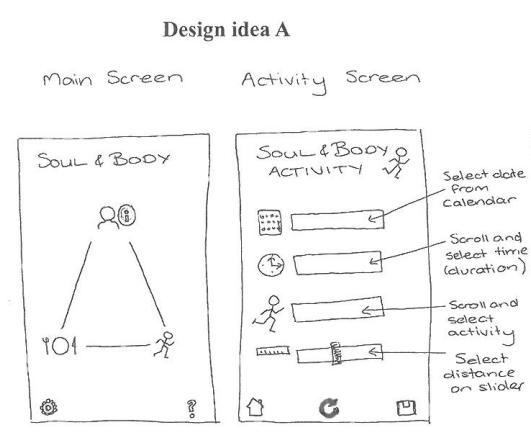 Design idea A
Main Screen
Activity Screen
SOUL & BODY
SOUL & BODY
ACTIVITY
Select date
from
calendar
Scroll and
select time
(duration)
Scroll and
select
activity
Select
distance
on slider
?